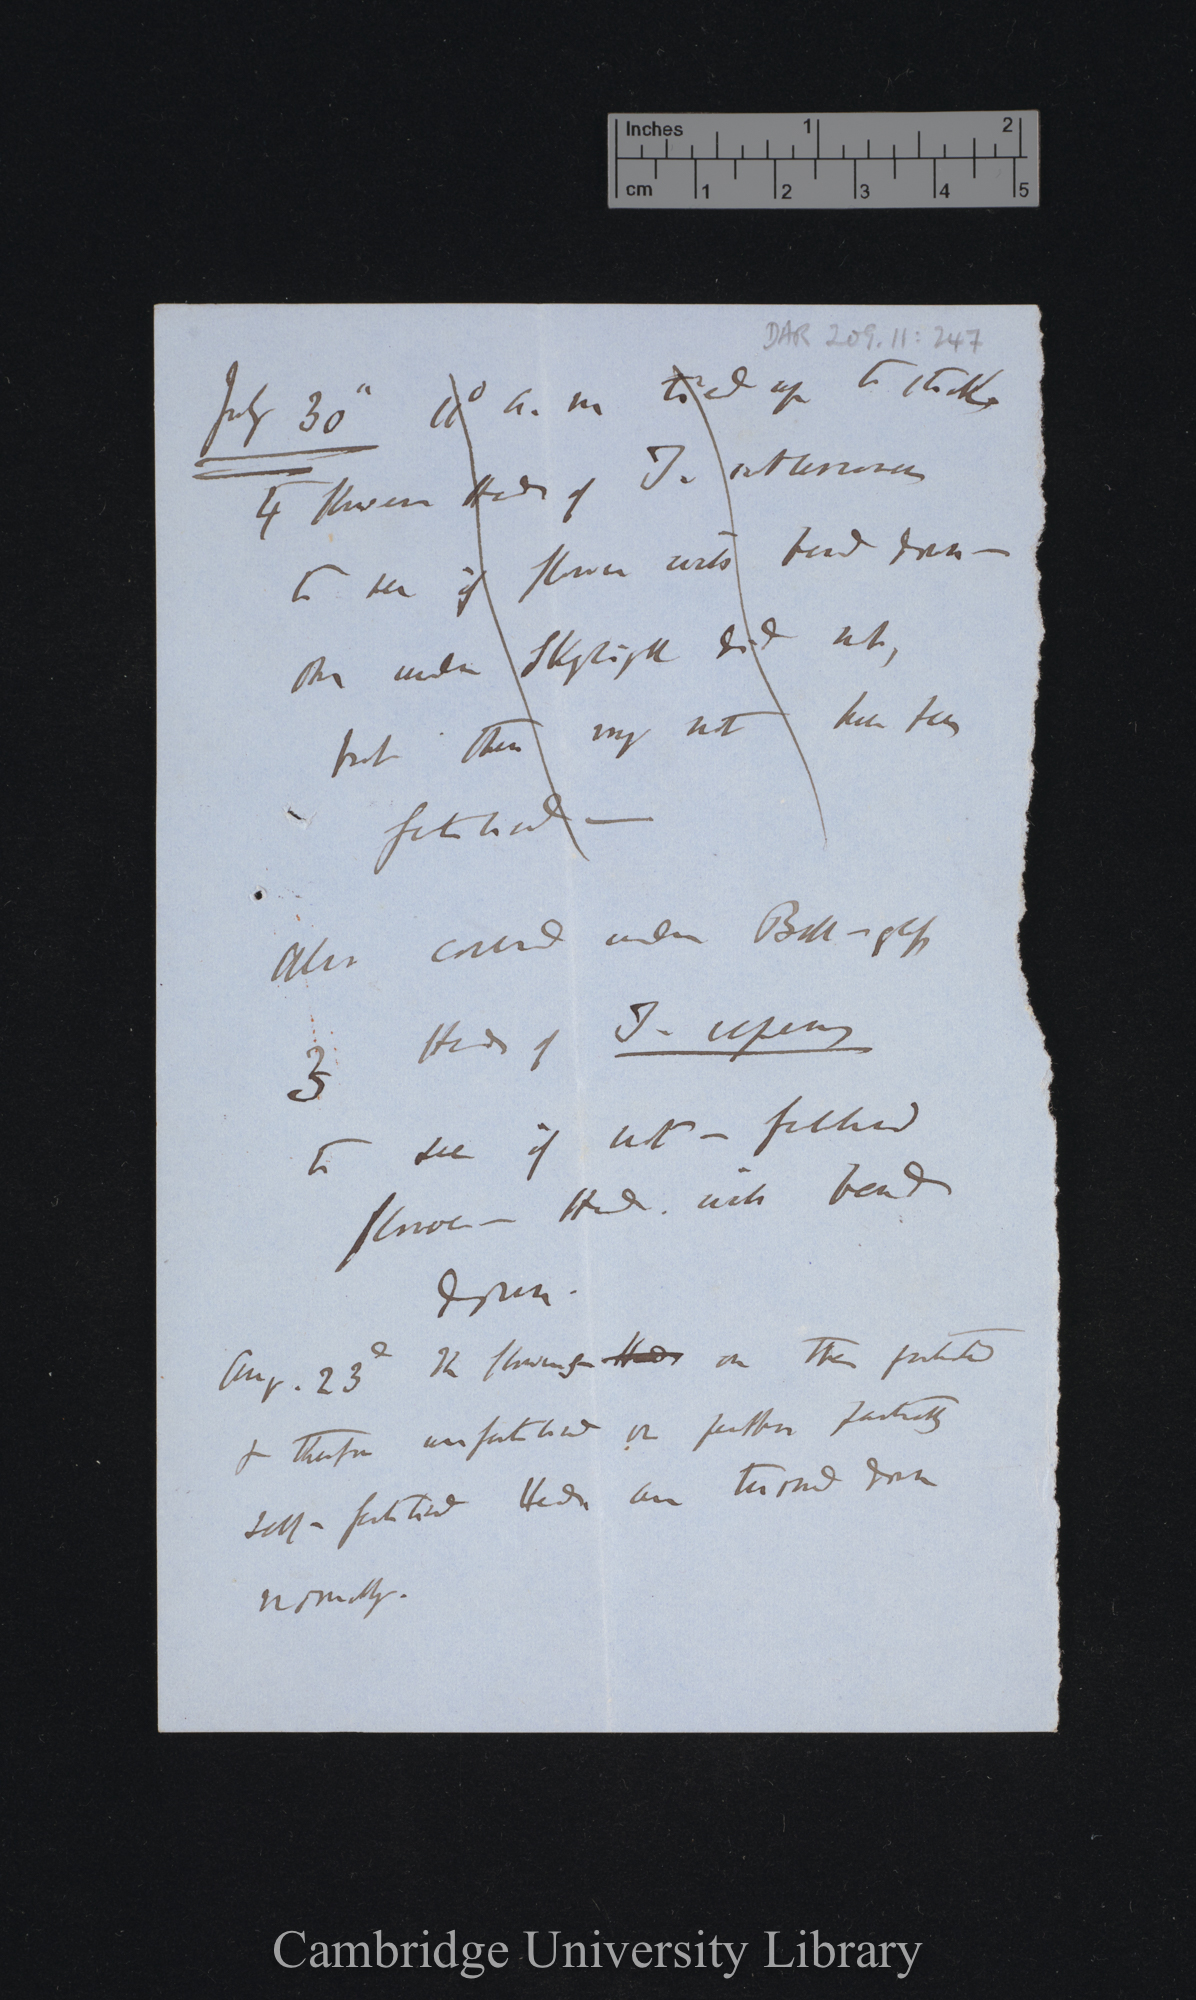 Inches 1 2
cm 1 2 3 4 5
DAR 209.11: 247
July 30th 11° a. m tied up to sticks
4 flower Heads of T. subterraneum
to see if flower will bend down —
One under Skylight did not,
but then may not have been
fertilised —
Also covered under Bell-glass
3 Heads of T. repens
to see if not-fertilised
flower-Head will bend
down.
Aug. 23d The flowers Heads on the protected
& therefore unfertilised or perhaps partially
self-fertilised Heads are turned down
normally.
Cambridge University Library